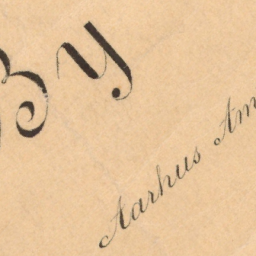 By
Aarhus Am